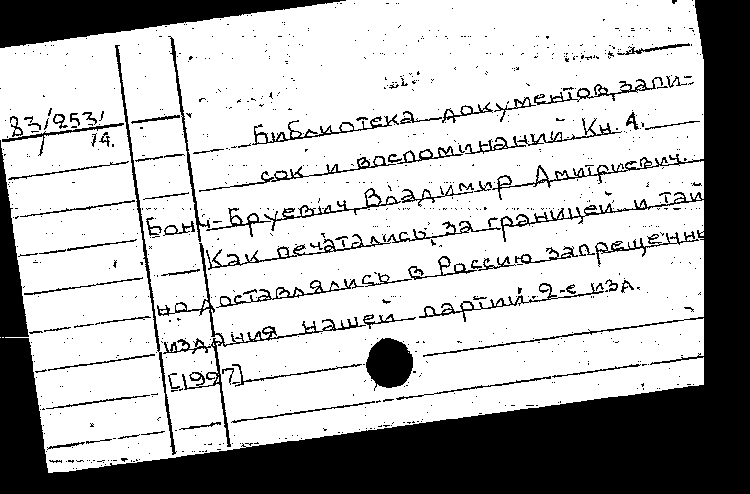 83/253
14.
Библиотека документов, запи-
сок и воспоминаний. Кн. 4.
Бонч-Бруевич, Владимир Дмитриевич.
Как печатались за границей и тай
но доставлялись в Россию запрещенны
издания нашей партии. 2-е изд.
[1927]